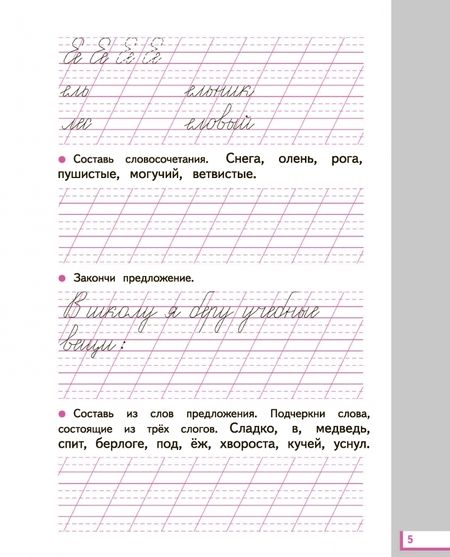 Е Е Е Е
ель ельник
лес еловый
Составь словосочетания. Снега, олень, рога,
пушистые, могучий, ветвистые.
Закончи предложение.
В школу я беру учебные
вещи:
Составь из слов предложения. Подчеркни слова,
состоящие из трёх слогов. Сладко, в, медведь,
спит, берлоге, под, ёж, хвороста, кучей, уснул.
5